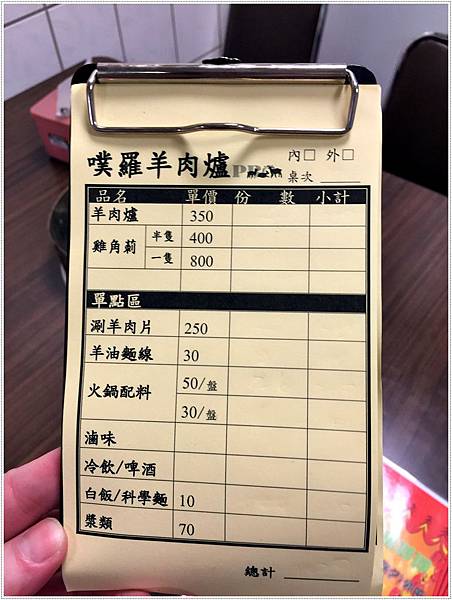 噗羅羊肉爐PRO
內□ 外□
桌次
品名 單價 份數 小計
羊肉爐 350
雞角莿 半隻 400
一隻 800
單點區
涮羊肉片 250
羊油麵線 30
火鍋配料 50/盤
30/盤
滷味
冷飲/啤酒
白飯/科學麵 10
漿類 70
總計